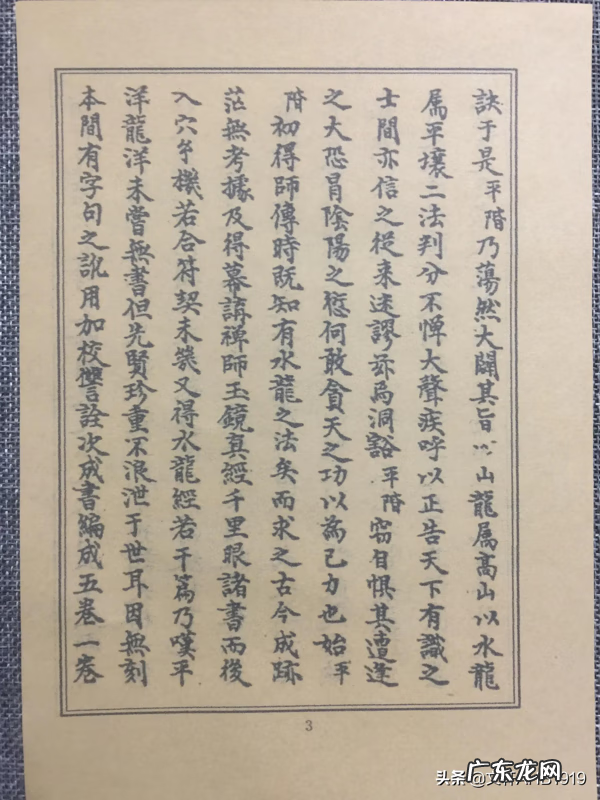 訣于是平階乃蕩然大闢其旨以山龍属高山以水龍
属平壤二法判分不憚大聲疾呼以正告天下有識之
士間亦信之從来迷謬焉洞豁平階竊自惧其遭逢
之大恐冒陰陽之愆何敢貪天之功以為己力也始平
階初得師傳時既知有水龍之法矣而求之古今成跡
茫無考據及得幕講禅師玉鏡真經千里眼諸書而後
入穴機若合符契未幾又得水龍經若干篇乃嘆平
洋龍洋未嘗無書但先賢珍重不浪泄于世耳因無刻
本間有字句之訛用加校讐詮次成書編成五卷一卷
3
广东龙网
头条
1919